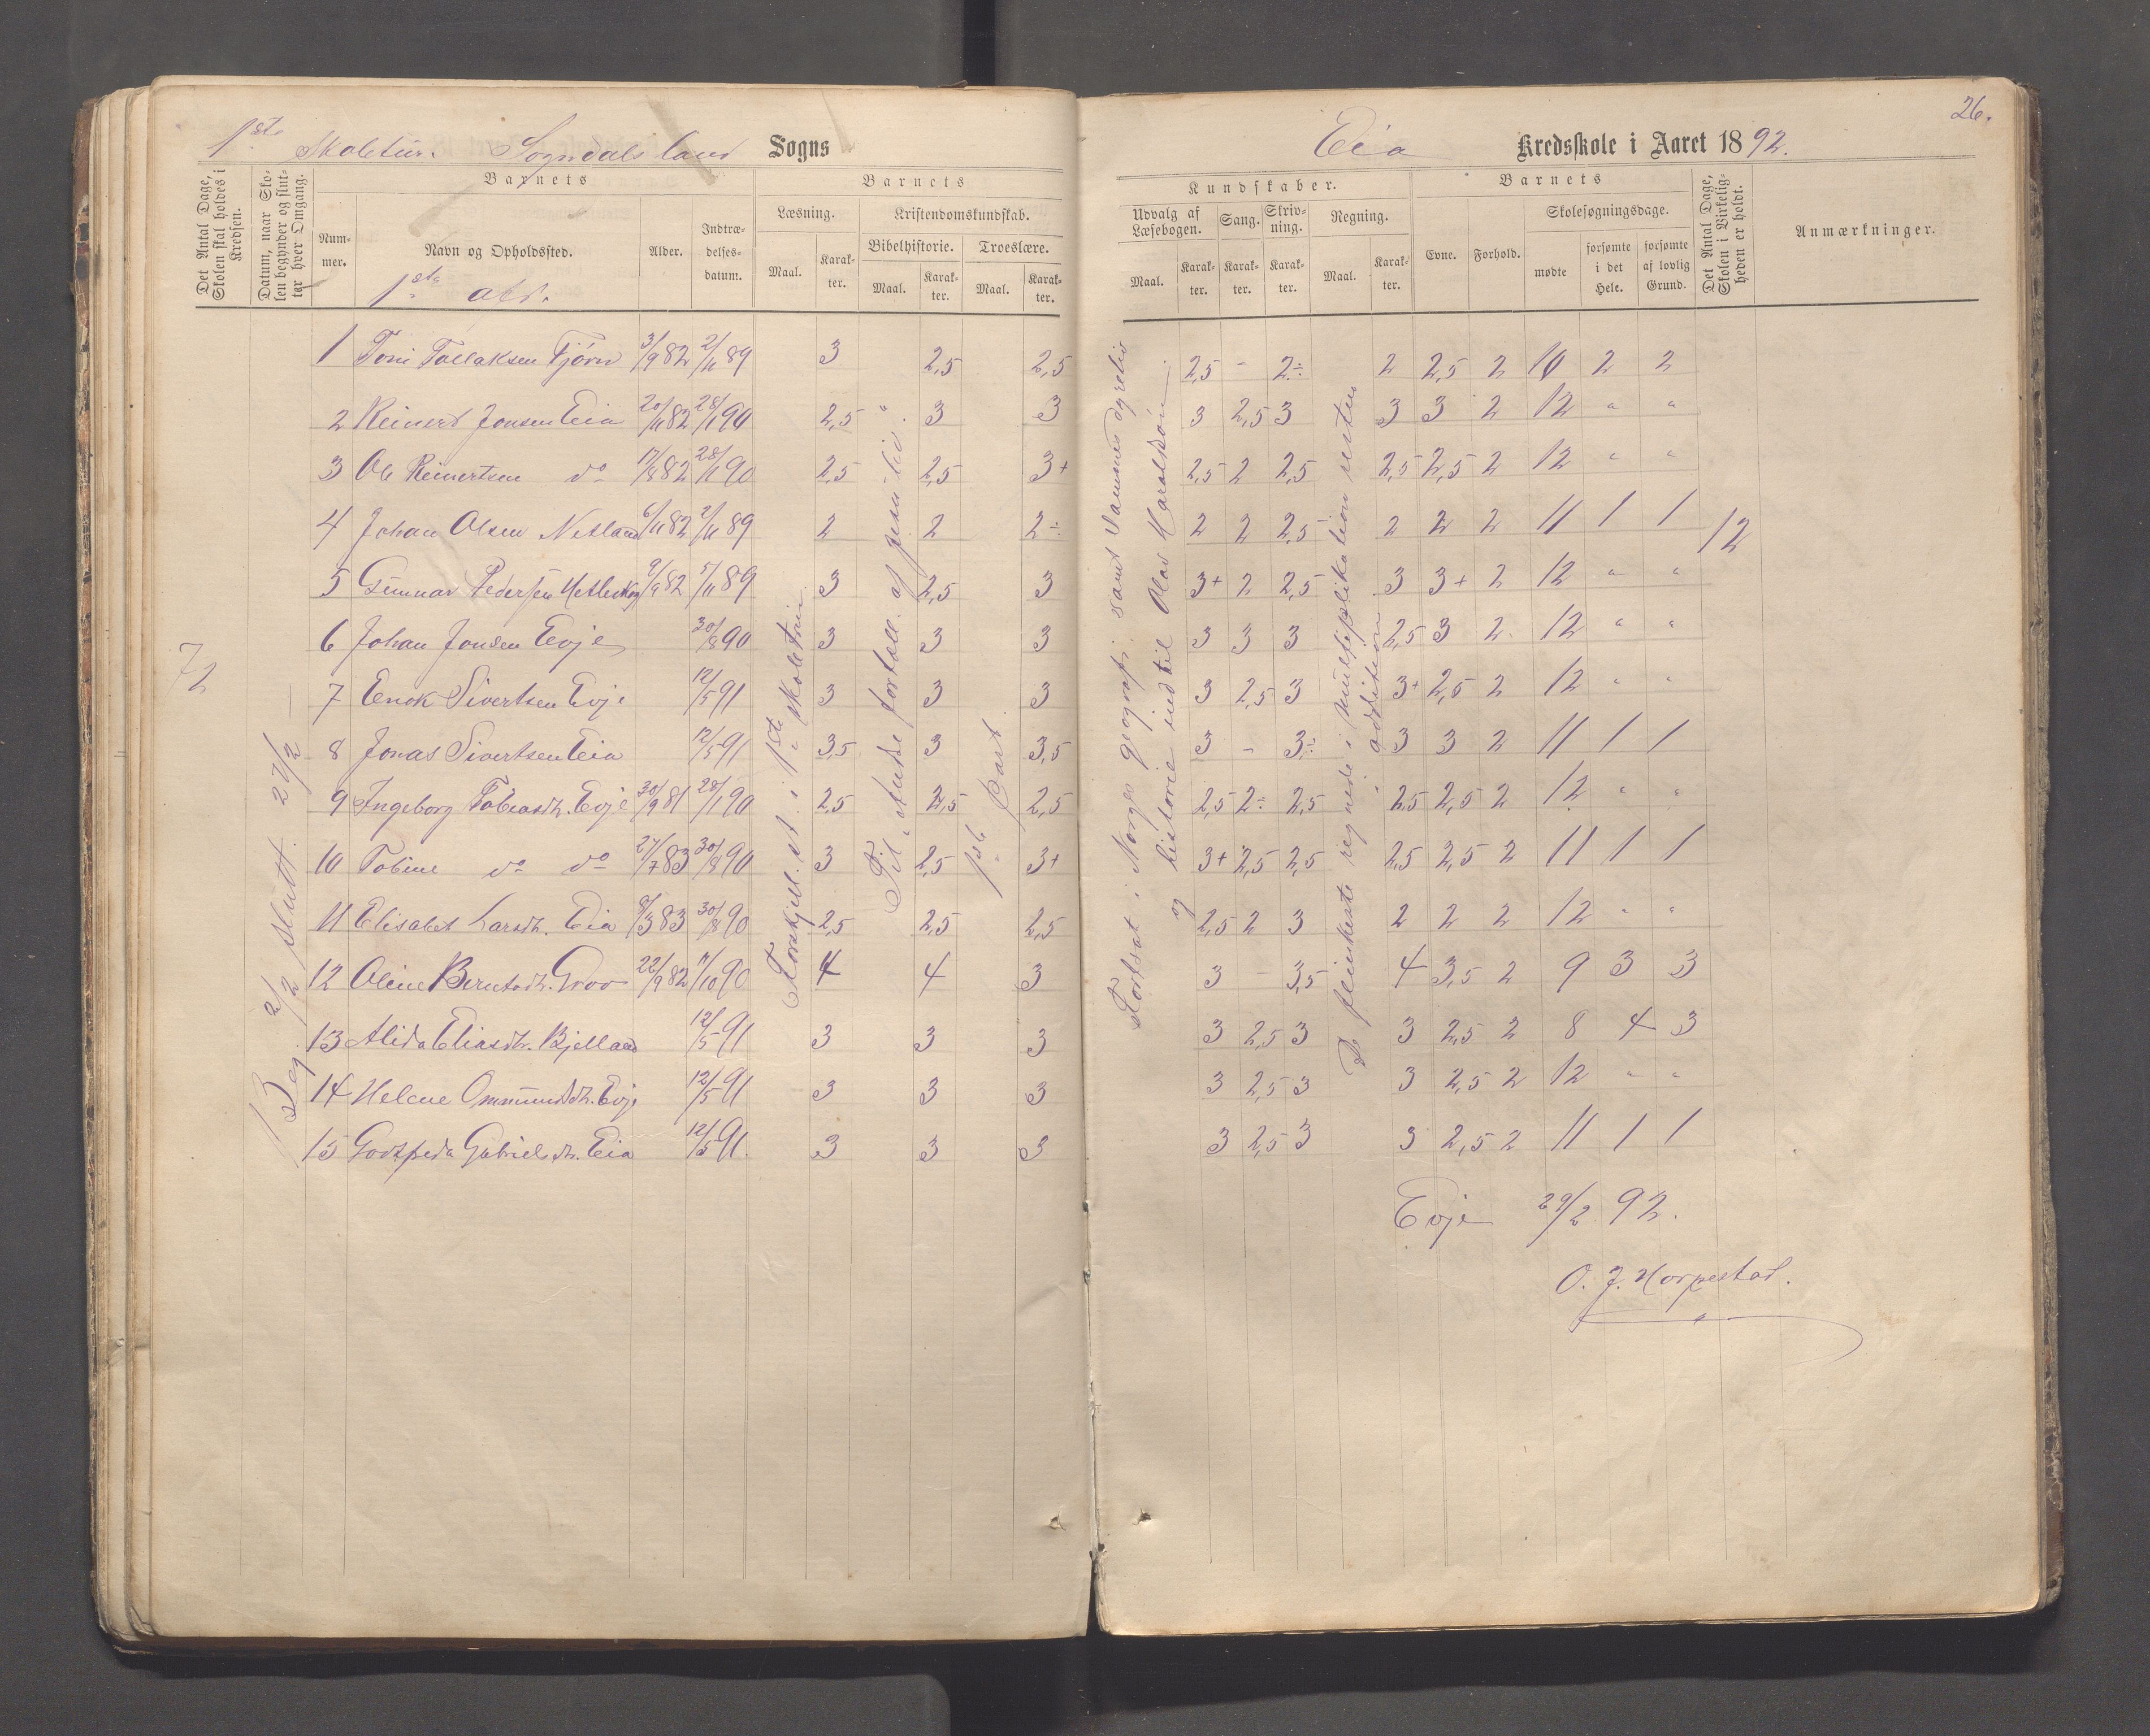 1ste Skoletur. Sogndals land Sogns
Eia Kredsskole i Aaret 1892.
26.
Det Antal Dage, Skolen skal holdes i Kredsen.
Datum, naar Skolen begynder og slutter hver Omgang.
Barnets
Nummer.
Navn og Opholdssted.
Alder.
Indtrædelsesdatum.
Barnets
Læsning.
Maal.
Karakter.
Kristendomskundskab.
Bibelhistorie.
Maal.
Karakter.
Troeslære.
Maal.
Karakter.
Kundskaber.
Udvalg af Læsebogen.
Maal.
Karakter.
Sang.
Karakter.
Skrivning.
Karakter.
Regning.
Maal.
Karakter.
Barnets
Evne.
Forhold.
Skolesøgningsdage.
mødte
forsømte i det Hele.
forsømte af lovlig Grund.
Det Antal Dage, Skolen i Virkeligheden er holdt.
Anmærkninger.
1ste afd.
1 Toni Tollaksen Fjörn 3/9 82 2/11 89 3 2,5 2,5 2,5 - 2÷ 2 2,5 2 10 2 2
2 Reinert Jonsen Eia 20/11 82 28/1 90 2,5 3 3 3 2,5 3 3 3 2 12 " "
3 Ole Reinertsen do 17/8 82 28/1 90 2,5 2,5 3+ 2,5 2 2,5 2,5 2,5 2 12 " "
4 Johan Olsen Netland 6/11 82 2/11 89 2 2 2÷ 2 2 2,5 2 2 2 11 1 1
5 Gunnar Pedersen 2/9 82 5/11 89 3 2,5 3 3+ 2 2,5 3 3+ 2 12 " "
6 Johan Jonsen Evje 30/8 90 3 3 3 3 3 3 2,5 3 2 12 " "
7 Enok Sivertsen Evje 12/5 91 3 3 3 3 2,5 3 3+ 2,5 2 12 " "
8 Jonas Sivertsen Eia 12/5 91 3,5 3 3,5 3 - 3÷ 3 3 2 11 1 1
9 Ingeborg Tobiasdt. Evje 30/9 81 28/1 90 2,5 2,5 2,5 2,5 2÷ 2,5 2,5 2,5 2 12 " "
10 Tobine do do 27/7 83 30/8 90 3 2,5 3+ 3+ 2,5 2,5 2,5 2,5 2 11 1 1
11 Elisabet Larsdt. Eia 8/3 83 30/8 90 2,5 2,5 2,5 2,5 2 3 2 2 2 12 " "
12 Oline Berntsdt. 22/9 82 11/10 90 4 4 3 3 - 3,5 4 3,5 2 9 3 3
13 Alida Eliasdt. Bjelland 12/5 91 3 3 3 3 2,5 3 3 2,5 2 8 4 3
14 Helene Ommundsdt. Evje 12/5 91 3 3 3 3 2,5 3 3 2,5 2 12 " "
15 Gabrielsdt. Eia 12/5 91. 3 3 3 3 2,5 3 3 2,5 2 11 1 1
72
Beg. 2/2 slutt. 27/2
Forskjell. st. i 1ste skoletrin.
Til Andre fortæll. af Jesu lid.
1ste part.
Fortsat i Norges geografi, samt
og historie indtil Olav Haraldsön.
De flinkeste regnede i multiplikation resten
i addition.
12
Evje 29/2 92.
O. J. Horpestad.